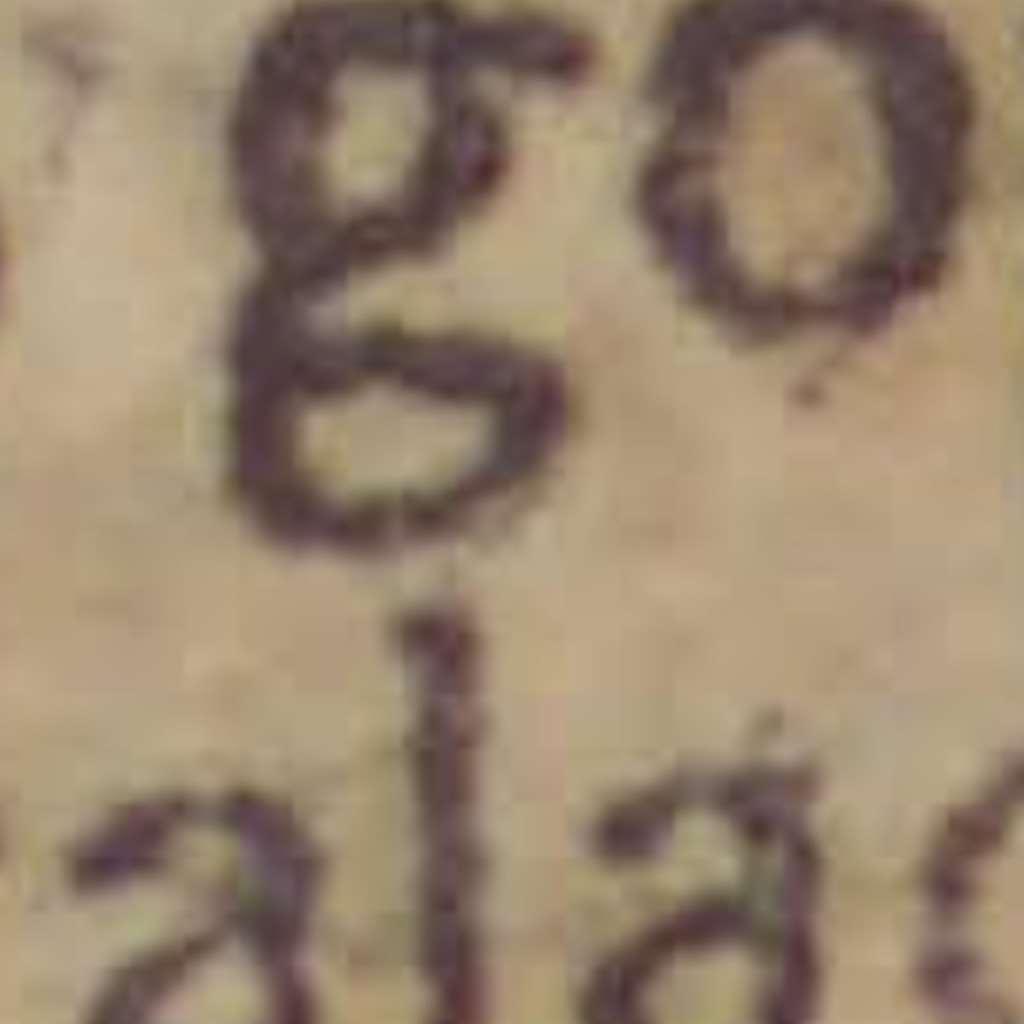 go
ala